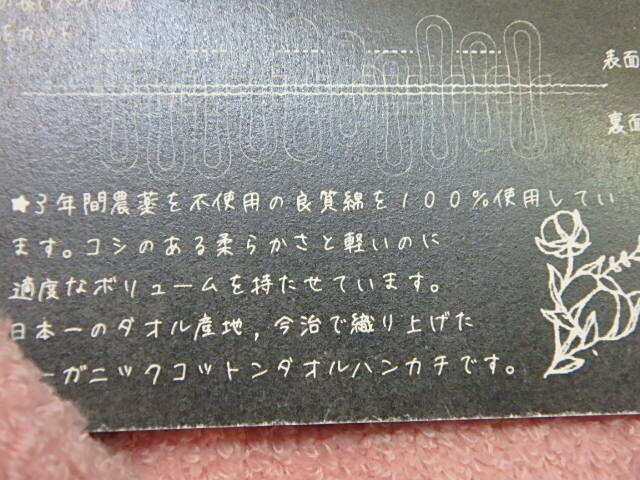 をカット
表面
裏面
★3年間農薬を不使用の良質綿を100%使用してい
ます。コシのある柔らかさと軽いのに
適度なボリュームを持たせています。
日本一のタオル産地,今治で織り上げた
ーガニックコットンタオルハンカチです。